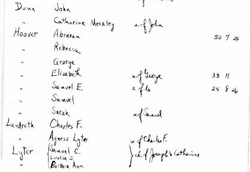 Dunn John
" Catharine w. of John
Hoover Abraham 50 7 26
" Rebecca
" George
" Elizabeth w of George 33 11
" Samuel E. s of 24 8 26
" Samuel
" Sarah w of Samuel
Landreth Charles F.
" Agness Lyter w of Charles F.
Lyter Samuel C. } ch of Joseph & Catharine
" Lucia S.
" Barbara Ann